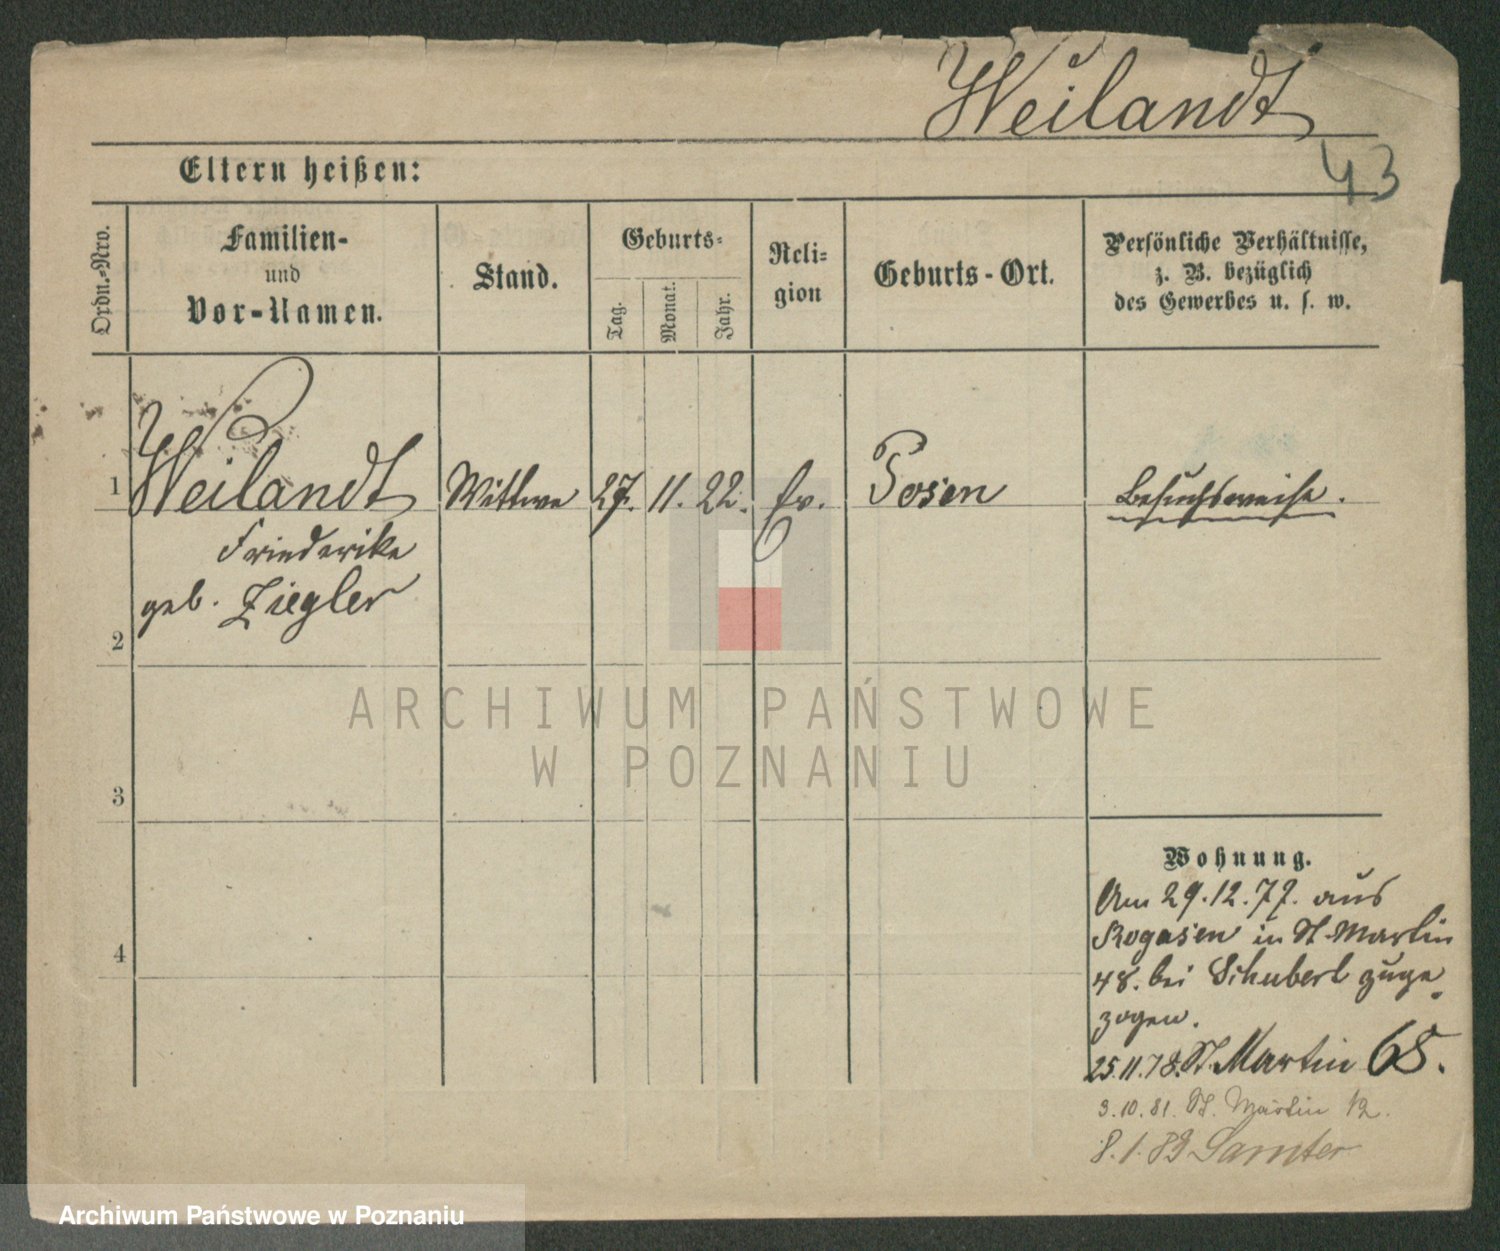 Weilandt
43
Eltern heißen:
Ordn.-Nro.
Familien-
und
Vor-Namen.
Stand.
Geburts-
Tag.
Monat.
Jahr.
Reli-
gion
Geburts-Ort.
Persönliche Verhältnisse,
z. B. bezüglich
des Gewerbes u. s. w.
1 Weilandt Wittwe 27. 11. 22. ev. Posen Besuchsweise.
Friederike
geb. Ziegler
2
3
4
ARCHIWUM PAŃSTWOWE
W POZNANIU
Wohnung.
Am 29.12.77. aus
Rogasen in St Martin
48. bei Schubert zuge-
zogen.
25.11.78. St. Martin 68.
3.10.81. St. Martin 12.
8.1.89 Samter
Archiwum Państwowe w Poznaniu